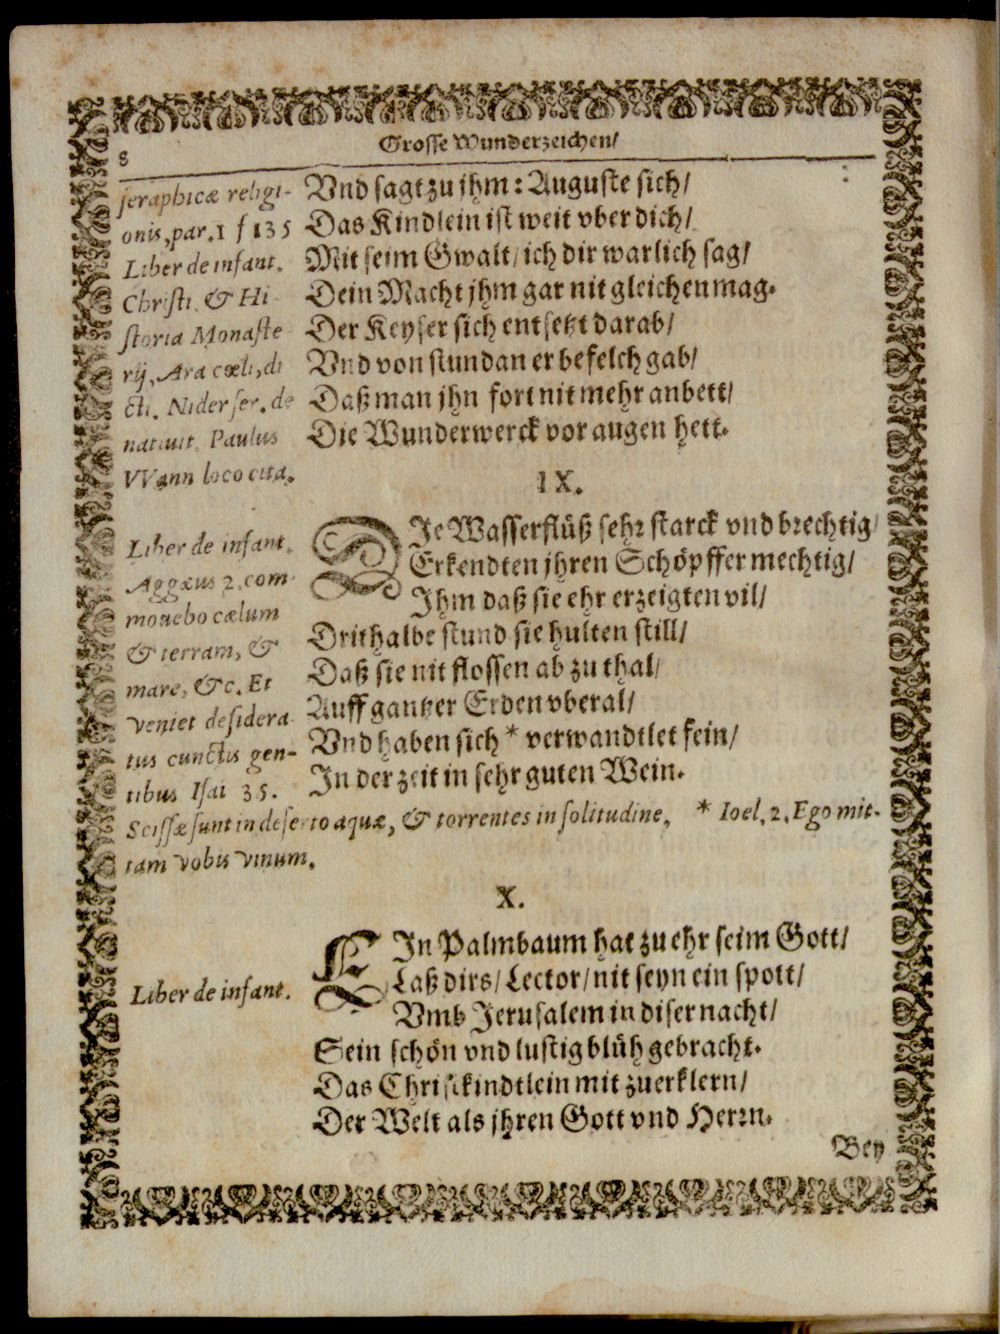 Grosse Wunderzeichen/
8
seraphicæ religi-
onis, par. 1 f 135
Liber de infant.
Christi. & Hi
storia Monaste
rij, Ara cœli, di
cti. Nider ser. de
natiuit. Paulus
VVann loco cita.
Vnd sagt zu jhm: Auguste sich/
Das Kindlein ist weit vber dich/
Mit seim Gwalt/ ich dir warlich sag/
Dein Macht jhm gar nit gleichen mag.
Der Keyser sich entsetzt darab/
Vnd von stundan er befelch gab/
Daß man jhn fort nit mehr anbett/
Die Wunderwerck vor augen hett.
IX.
Liber de infant.
Aggæus 2. com
mouebo cælum
& terram, &
mare, &c. Et
veniet desidera
tus cunctis gen-
tibus Isai 35.
DIe Wasserflüß sehr starck vnd brechtig/
Erkendten jhren Schöpffer mechtig/
Ihm daß sie ehr erzeigten vil/
Drithalbe stund sie hulten still/
Daß sie nit flossen ab zu thal/
Auff gantzer Erden vberal/
Vnd haben sich * verwandtlet fein/
In der zeit in sehr guten Wein.
Scissæ sunt in deserto aquæ, & torrentes in solitudine. * Ioel. 2. Ego mit-
tam vobis vinum.
X.
Liber de infant.
EIn Palmbaum hat zu ehr seim Gott/
Laß dirs/ Lector/ nit seyn ein spott/
Vmb Jerusalem in diser nacht/
Sein schön vnd lustig blüh gebracht.
Das Christkindtlein mit zuerklern/
Der Welt als jhren Gott vnd Herrn.
Bey